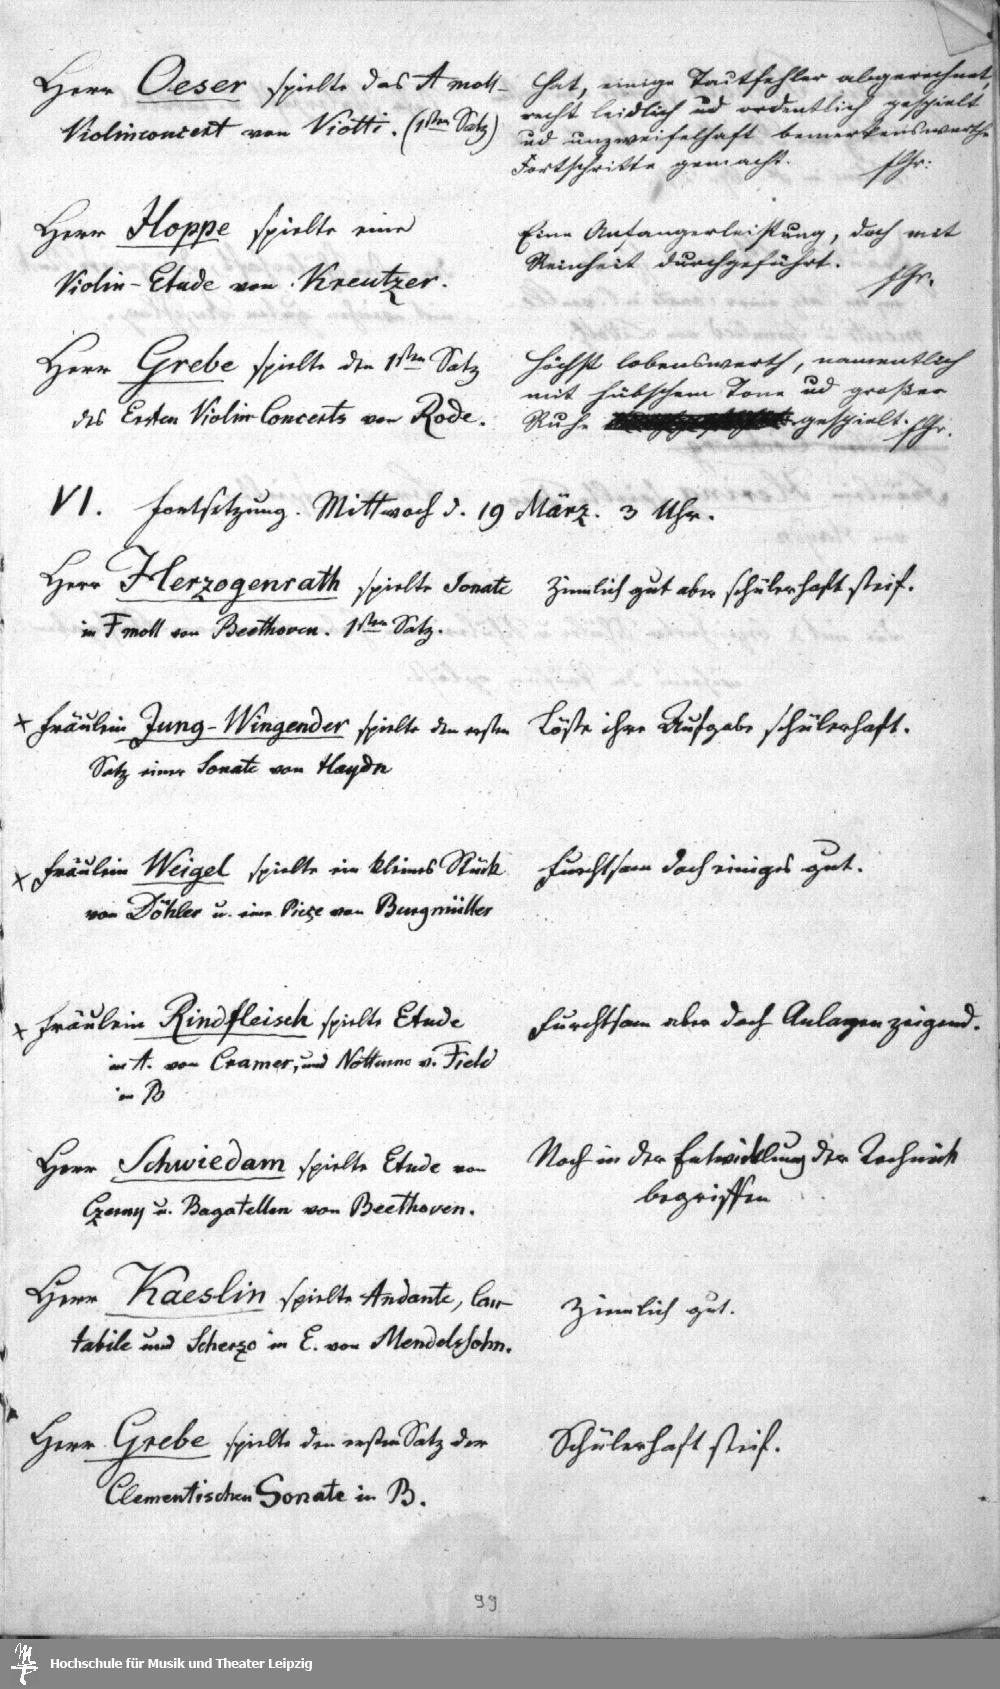 Herr Oeser spielte das A moll-
Violinconcert von Viotti. (1sten Satz)
Hat, einige Tactfehler abgerechnet,
recht leidlich ud ordentlich gespielt
ud unzweifelhaft bemerkenswerthe
Fortschritte gemacht.
Herr Hoppe spielte eine
Violin-Etude von Kreutzer.
Eine Anfangerleistung, doch mit
Reinheit durchgeführt.
Herr Grebe spielte den 1sten Satz
des Ersten Violin Concerts von Rode.
Höchst lobenswerth, namentlich
mit hübschem Tone ud großer
Ruhe gespielt.
VI. Fortsetzung. Mittwoch d. 19 März. 3 Uhr.
Herr Herzogenrath spielte Sonate
in F moll von Beethoven. 1sten Satz.
Ziemlich gut aber schülerhaft steif.
x Fräulein Jung-Wingender spielte den ersten
Satz einer Sonate von Haydn
Löste ihre Aufgabe schülerhaft.
x Fräulein Weigel spielte ein kleines Stück
von Döhler u. eine Pieçe von Burgmüller
Furchtsam doch einiges gut.
x Fräulein Rindfleisch spielte Etude
in A. von Cramer, und Notturno v. Field
in B
Furchtsam aber doch Anlagen zeigend.
Herr Schwiedam spielte Etude von
Czerny u. Bagatellen von Beethoven.
Noch in der Entwicklung der Technick
begriffen
Herr Kaeslin spielte Andante, Can-
tabile und Scherzo in E. von Mendelssohn.
Ziemlich gut.
Herr Grebe spielte den ersten Satz der
Clementischen Sonate in B.
Schülerhaft steif.
99
Hochschule für Musik und Theater Leipzig